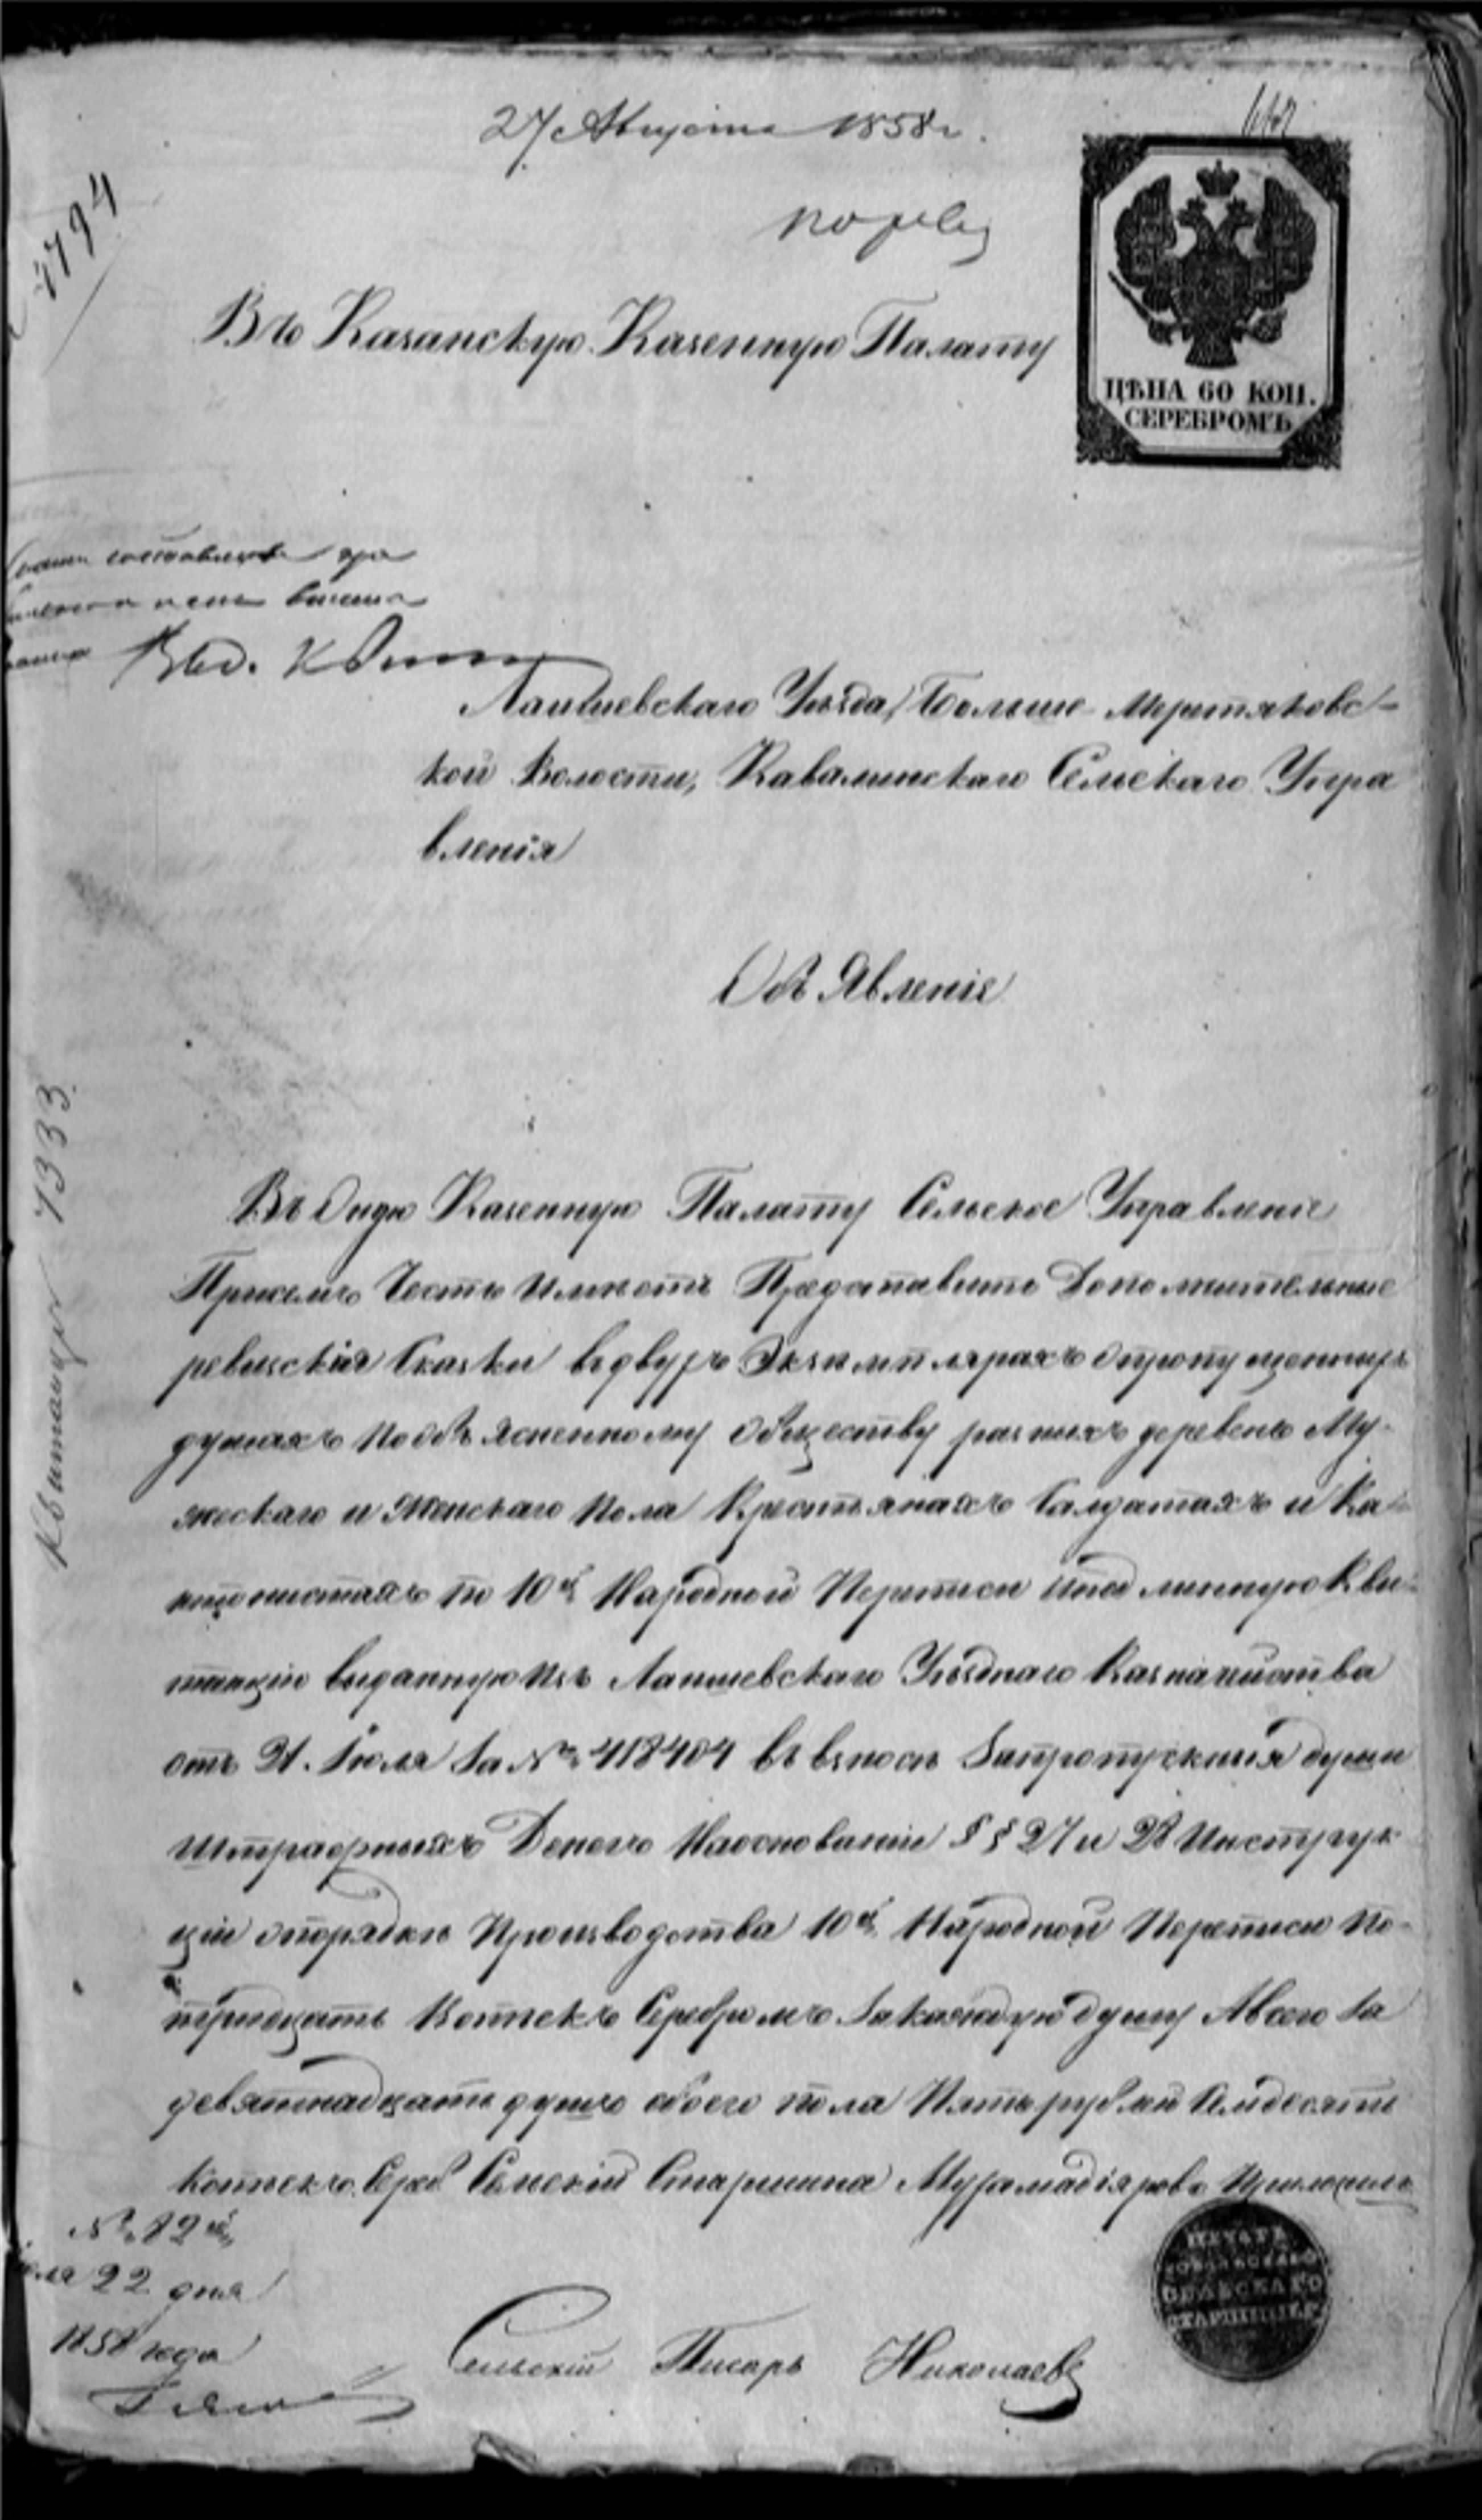 27 Августа 1858 г.
1794
по рев
Въ Казанскую Казенную Палату
ЦѢНА 60 КОП.
СЕРЕБРОМЪ
Лаишевскаго Уѣзда, Больше Меретяковс-
кой Волости, Кавалинскаго Сельскаго Упра
вленія
Объ Явленіе
Въ Оную Казенную Палату Сельское Управленіе
Присемъ Честь Имѣетъ Представить Дополнительные
ревизскія Сказки въ двухъ Экземплярахъ о пропущенныхъ
душахъ по объясненному Обществу разныхъ деревень Му-
жескаго и Женскаго пола Крестьянахъ Салдатахъ и Ка-
нтонистахъ по 10й Народной Переписи и подлинную Кви-
танцію выданную изъ Лаишевскаго Уѣзднаго Казначейства
отъ 21. Іюля за № 418404 въ взносѣ за пропускныя души
Штрафныхъ Денегъ На основаніи §§ 27 и 28 Инструк
ціи о порядкѣ Производства 10й Народной Переписи по-
тридцать Копѣекъ Серебромъ за каждую душу А всего за
девятнадцать душъ обоего пола Пять рублей Семдесять
Копѣекъ Сереб Сельскій Старшина Мухамадіяровъ Приложилъ
ПЕЧАТЬ
СЕЛЬСКАГО
СТАРШИНЫ
№ 12й
22 дня
1858 года
Сельскій Писарь Николаевъ
Квитанція 1333